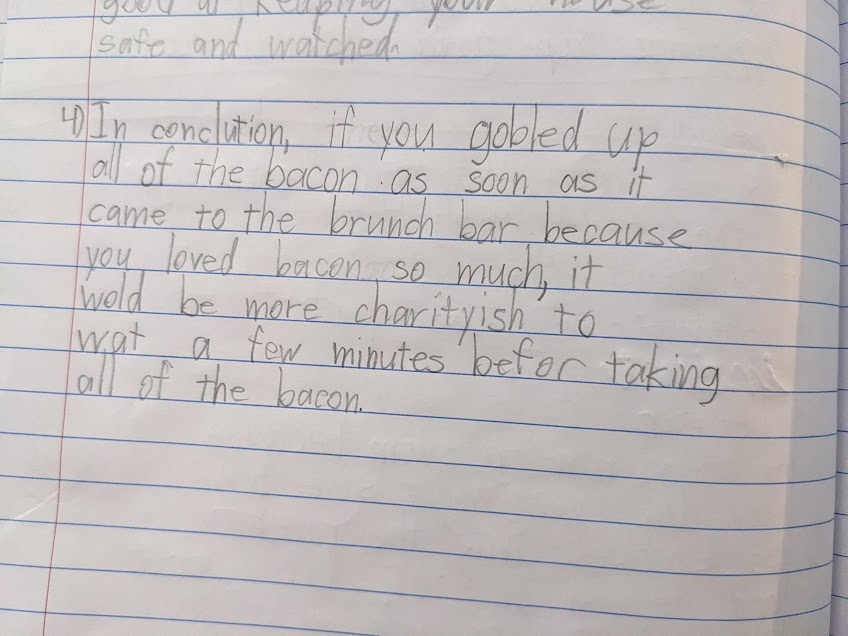 good at keapling your house
safe and watched.
4) In conclution, if you gobled up
all of the bacon as soon as it
came to the brunch bar because
you loved bacon so much, it
wold be more charityish to
wat a few minutes befor taking
all of the bacon.